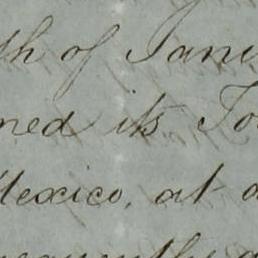 th of Janu
ned its To
Mexico, at a
equently a